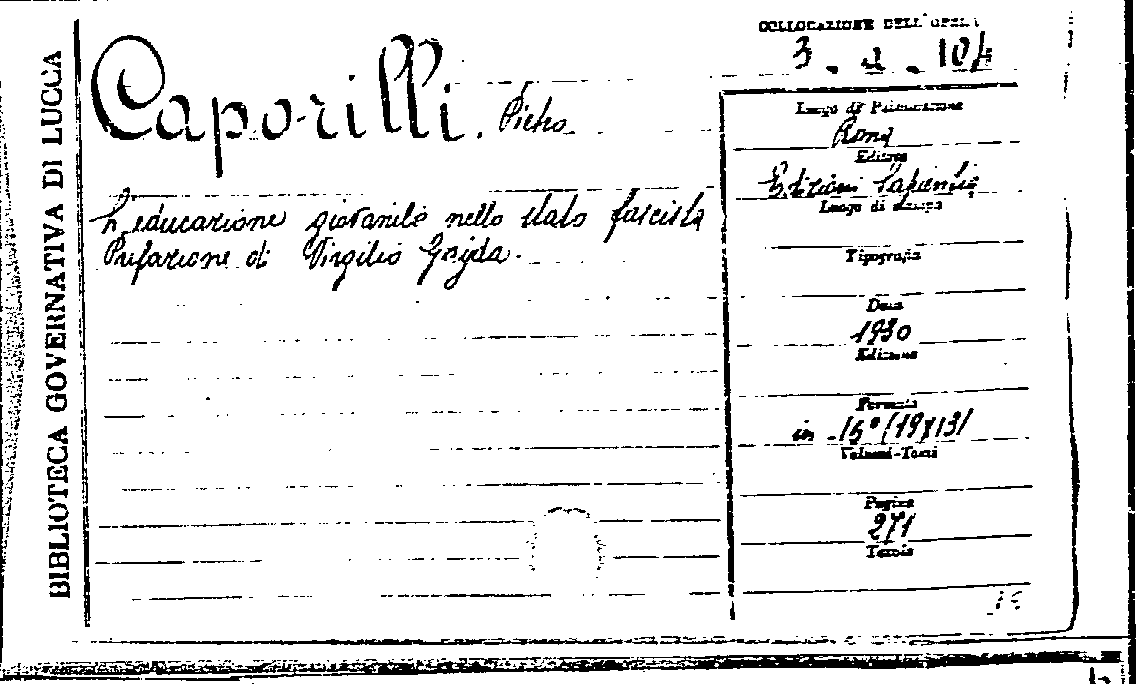 BIBLIOTECA GOVERNATIVA DI LUCCA
COLLOCAZIONE DELL'OPERA
3 . 2 . 104
Caporilli. Pietro
L'educazione giovanile nello stato fascista
Prefazione di Virgilio Gayda.
Luogo di Pubblicazione
Roma
Editore
Edizioni Sapientia
Luogo di stampa
Tipografia
Data
1930
Edizione
Formato
in -16° (19X13)
Volumi-Tomi
Pagine
271
Tavole